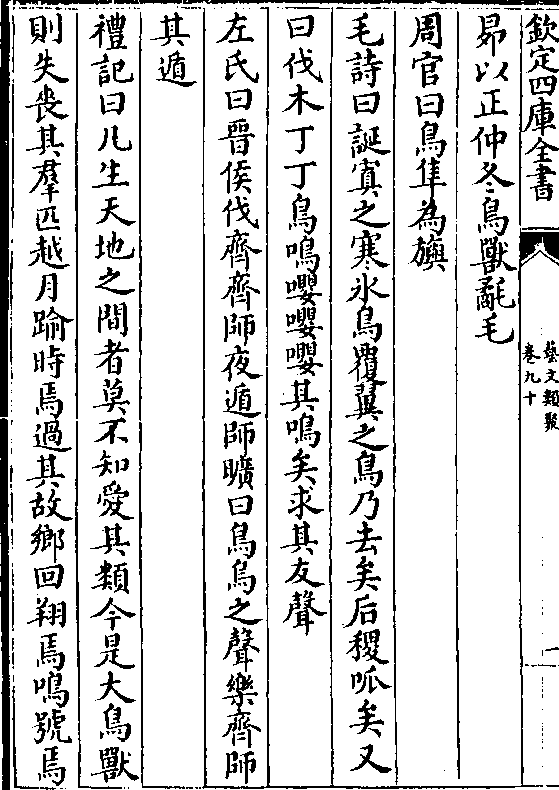 欽定四庫全書
藝文類聚
卷九十
一
昴以正仲冬鳥獸氄毛
周官曰鳥隼為旟
毛詩曰誕寘之寒氷鳥覆翼之鳥乃去矣后稷呱矣又
曰伐木丁丁鳥鳴嚶嚶嚶其鳴矣求其友聲
左氏曰晉侯伐齊齊師夜遁師曠曰鳥烏之聲樂齊師
其遁
禮記曰凡生天地之間者莫不知愛其類今是大鳥獸
則失喪其羣匹越月踰時焉過其故鄉回翔焉鳴號焉